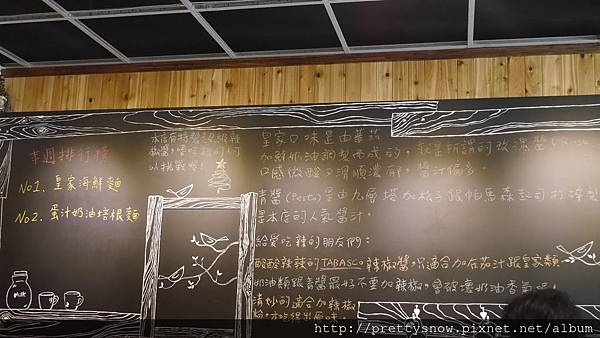 本週排行榜
No1. 皇家海鮮麵
No2. 蛋汁奶油培根麵
本店有特製超級辣
椒醬,愛吃辣的可
以挑戰喔!
皇家口味是由蕃茄
加鮮奶油調製而成的,就是所謂的玫瑰醬
口感微酸又滑順濃郁,醬汁偏多。
青醬(Pesto)是由九層塔加松子跟帕馬森起司打碎製
是本店的人氣醬汁。
給愛吃辣的朋友們:
酸酸辣辣的TABASCO辣椒醬只適合加在茄汁跟皇家類
奶油類跟青醬最好不要加辣椒,會破壞奶油香氣喔!
清炒的適合加辣椒
粉,才吃得出風味。
http://prettysnow.pixnet.net/album